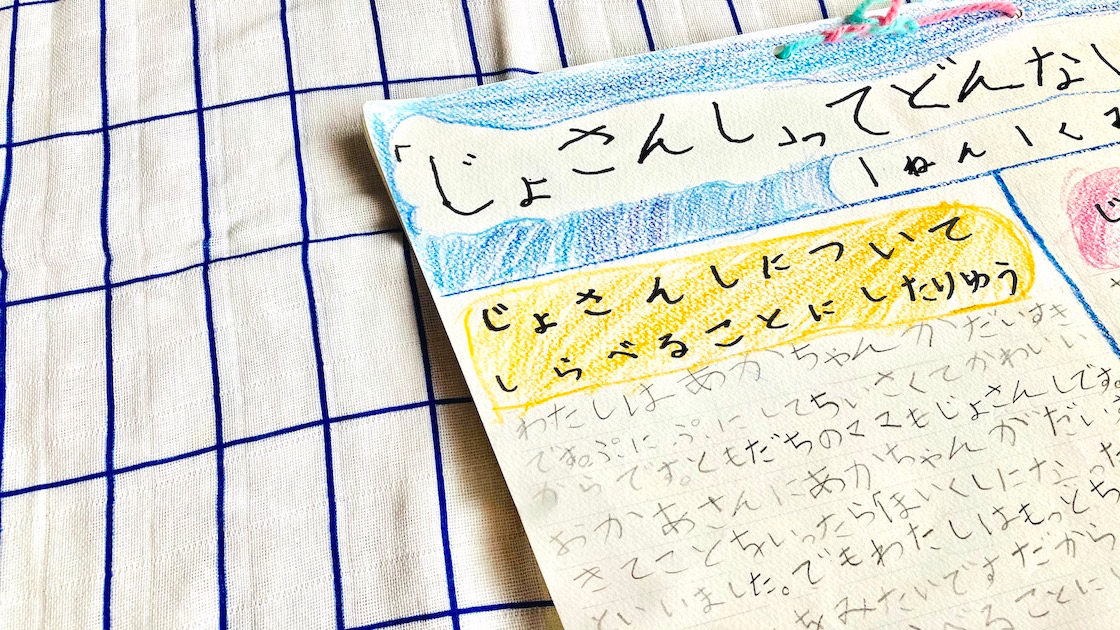 「じょさんし」ってどんなし
1ねん1く
じょさんしについて
しらべることにしたりゆう
じ
わたしはあかちゃんがだいすき
です。ぷにぷにしてちいさくてかわいい
からです。ともだちのママもじょさんしです。
おかあさんにあかちゃんがだい
きてことちいったらほいくしになった
といいました。でもわたしはもっとち
をみたいですだから
べることに